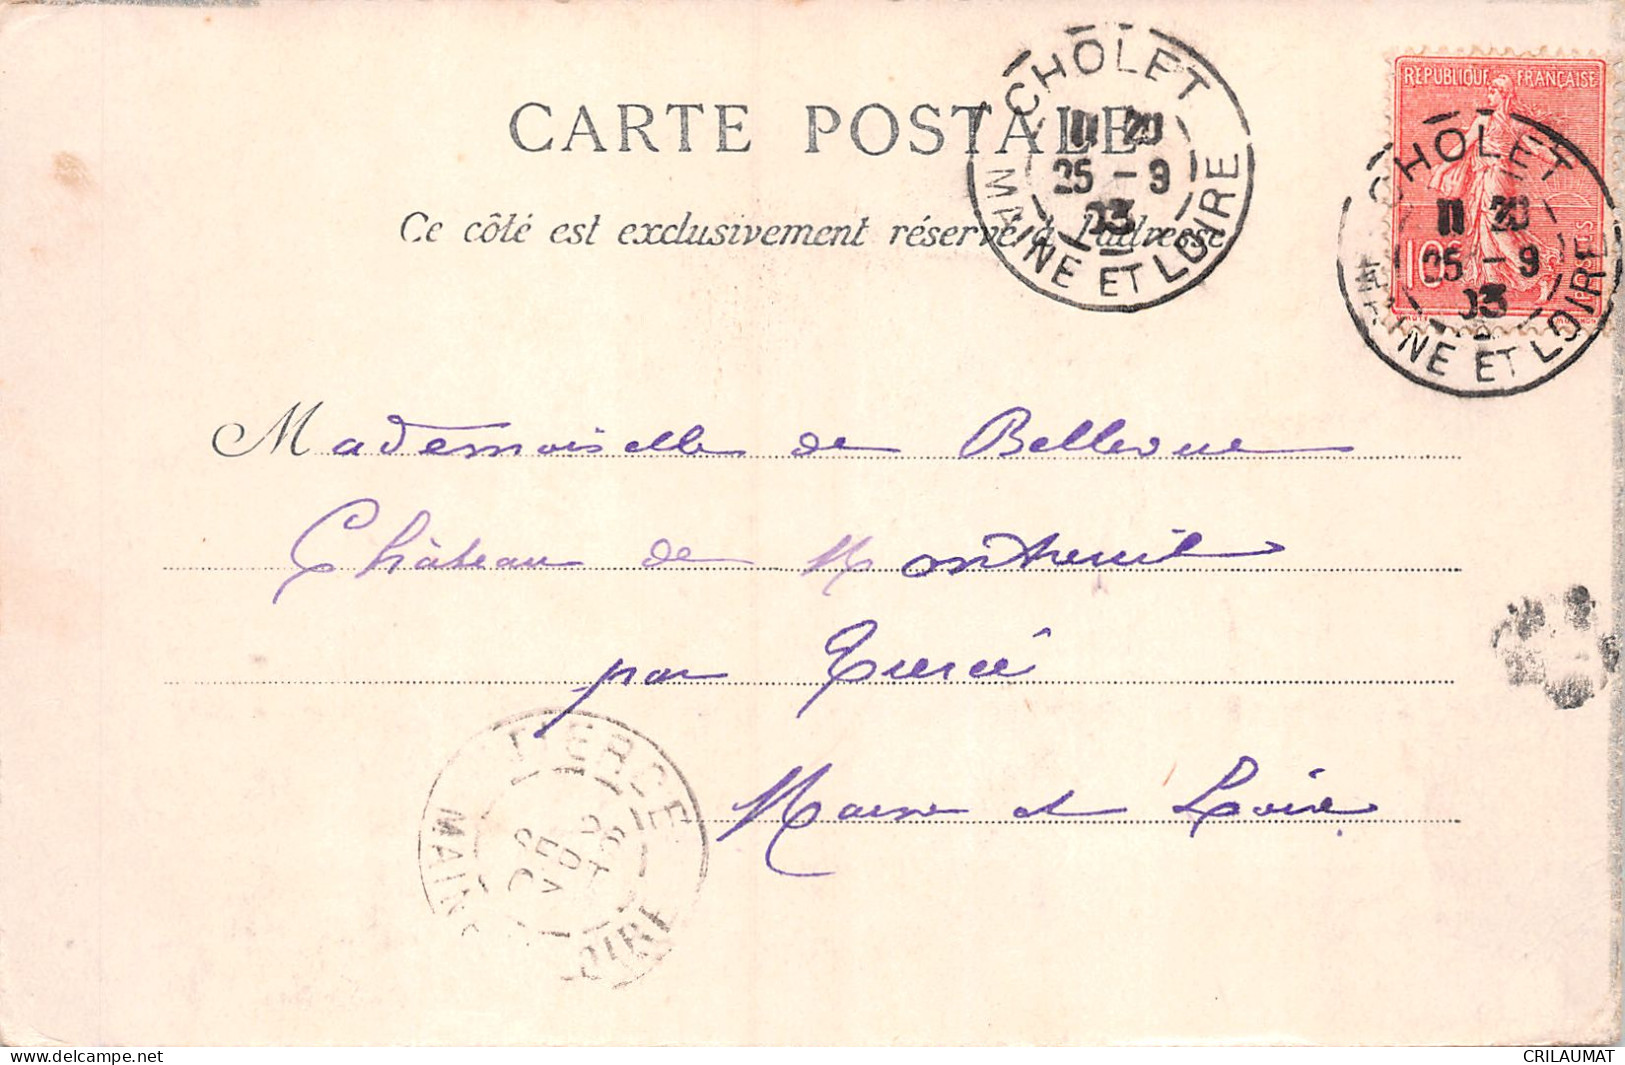 CARTE POSTALE
Ce côté est exclusivement réservé à l'adresse
CHOLET
11 20
25 - 9
03
MAINE ET LOIRE
RÉPUBLIQUE FRANÇAISE
10c POSTES
CHOLET
11 30
25 - 9
03
MAINE ET LOIRE
Mademoiselle de Bellevue
Château de Montreuil
par Tiercé
Maine et Loire
TIERCE
26
SEPT
MAINE
LOIRE
www.delcampe.net
CRILAUMAT